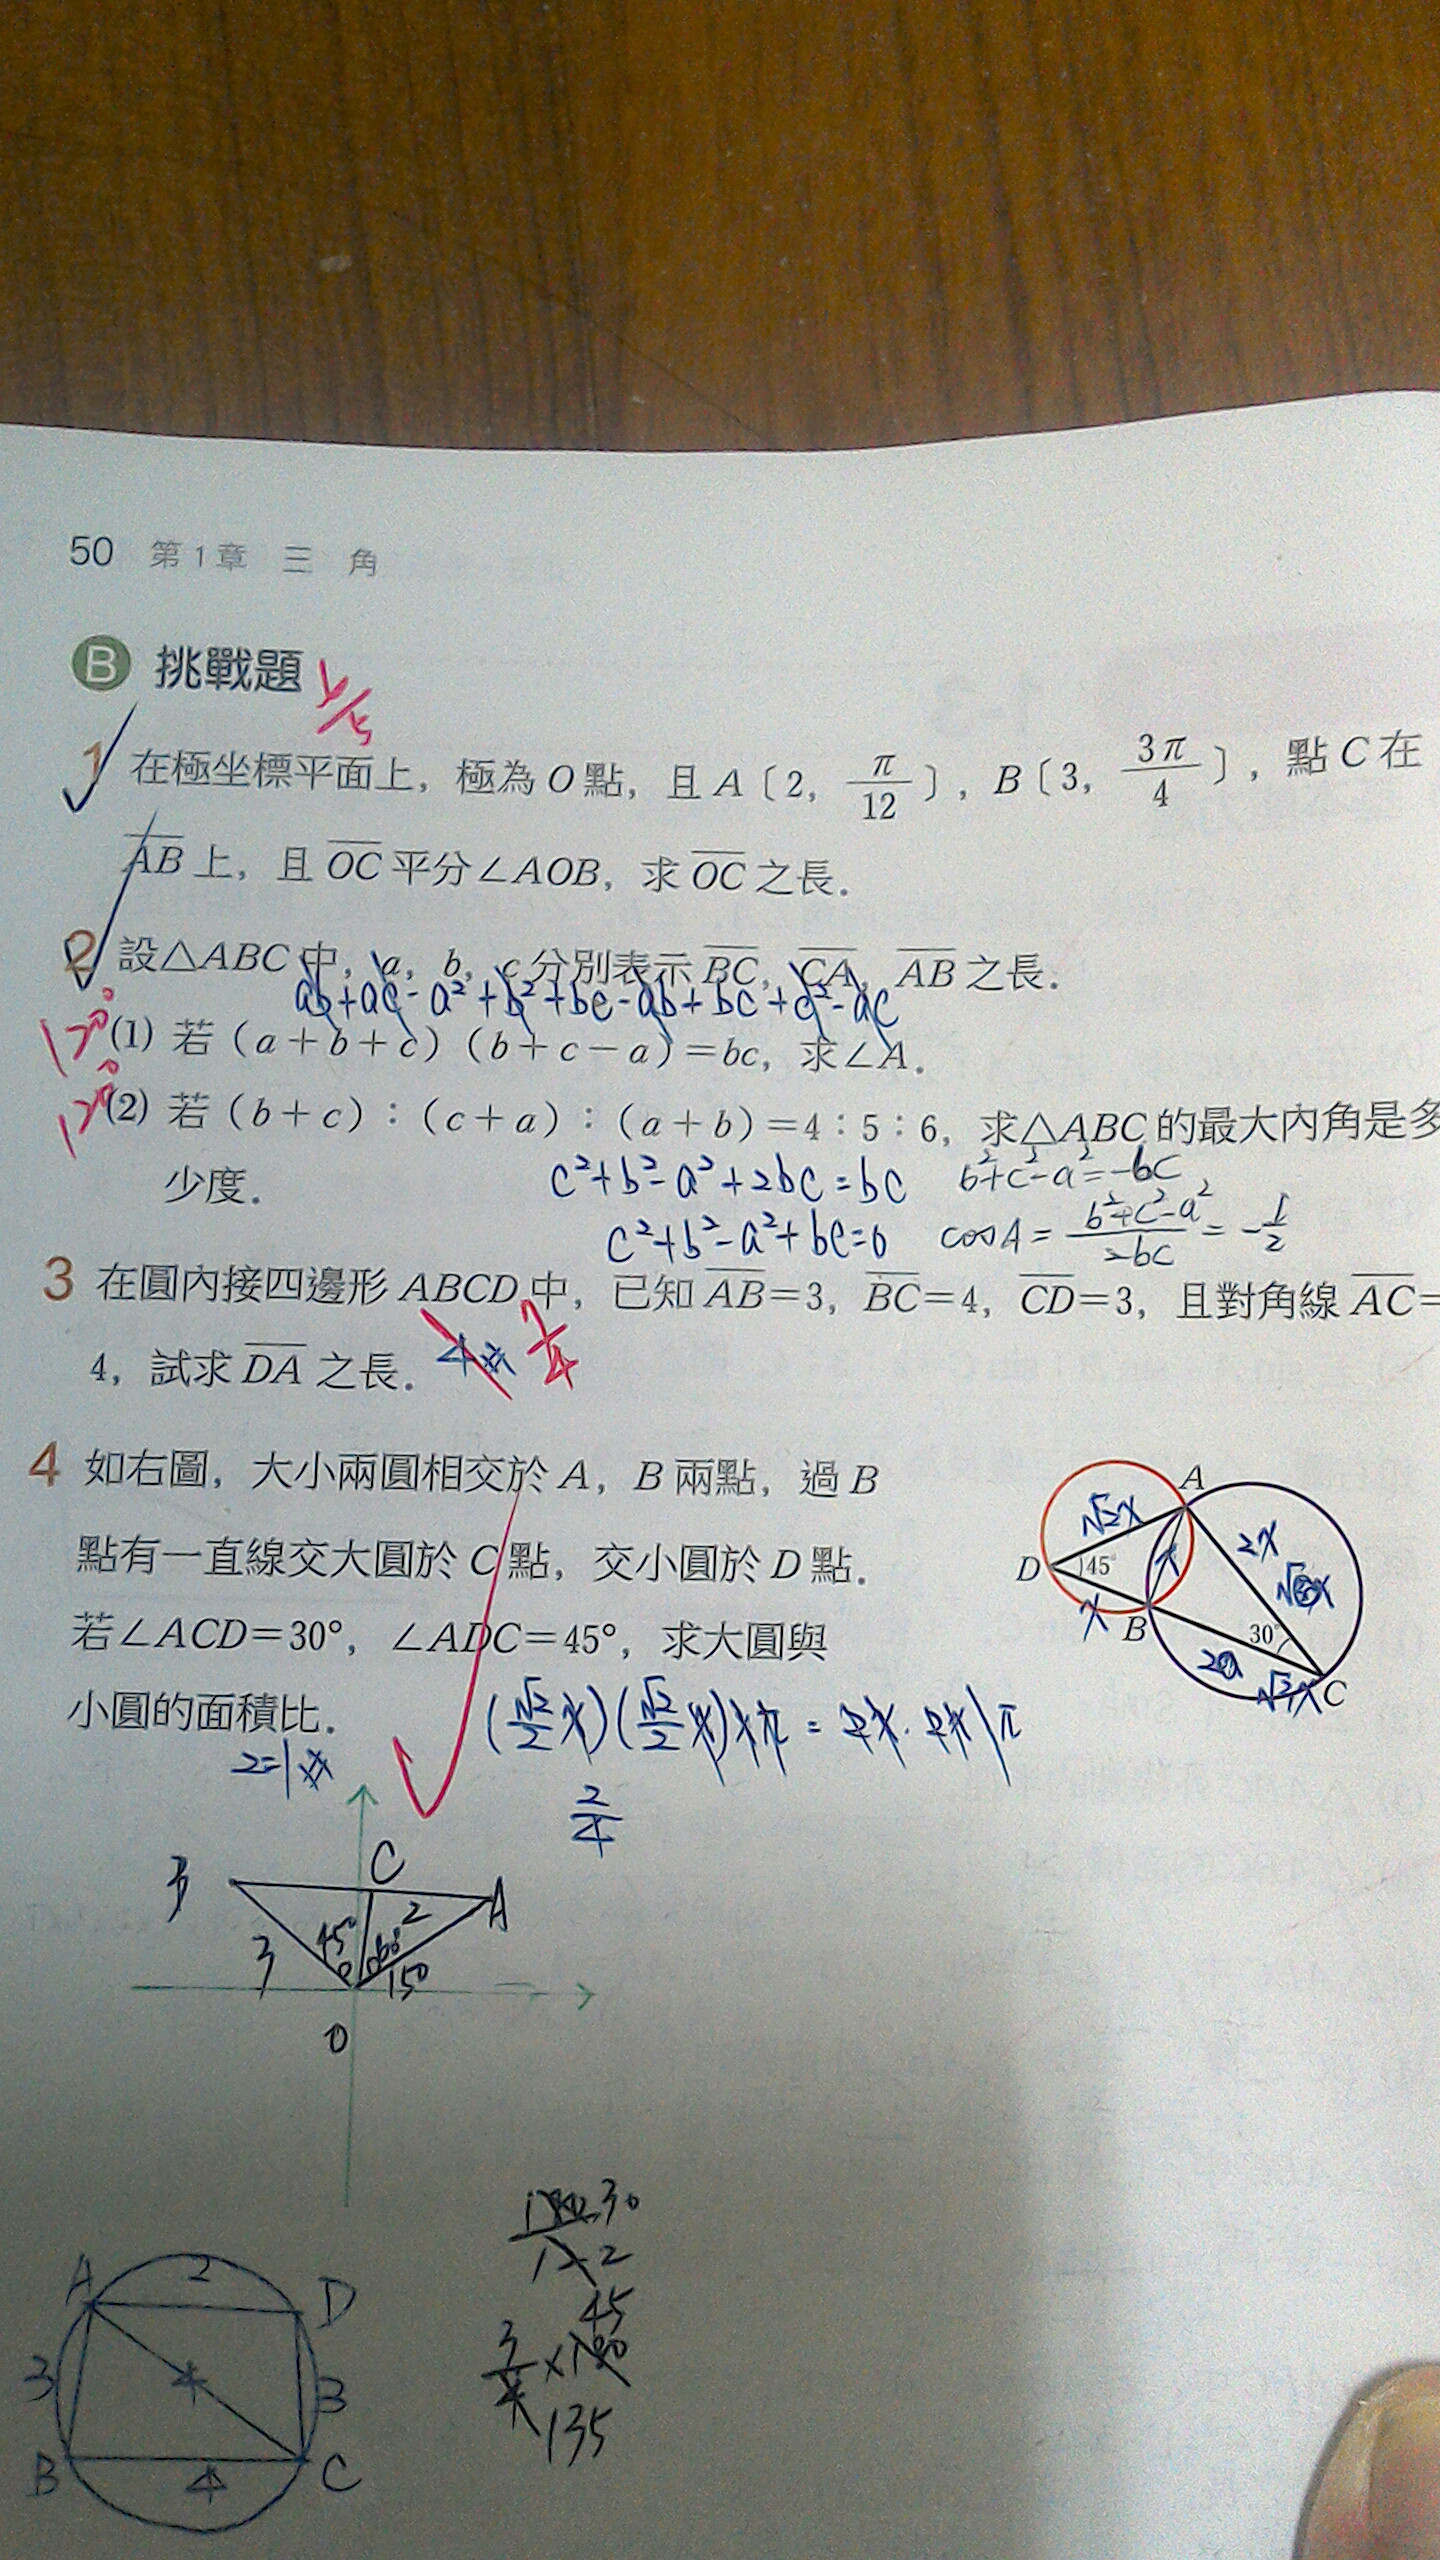 50 第1章 三 角
B 挑戰題
1 在極坐標平面上，極為O點，且A〔2, π/12〕, B〔3, 3π/4〕, 點C在
AB上，且OC平分∠AOB，求OC之長．
2 設△ABC中，a, b, c分別表示BC, CA, AB之長．
ab+ac-a²+b²+bc-ab+bc+c²-ac
120° (1) 若（a＋b＋c）（b＋c－a）＝bc，求∠A．
120° (2) 若（b＋c）：（c＋a）：（a＋b）＝4：5：6，求△ABC的最大內角是多
少度．
c²+b²-a²+2bc=bc b²+c²-a²=-bc
c²+b²-a²+bc=0 cosA = (b²+c²-a²)/2bc = -1/2
3 在圓內接四邊形ABCD中，已知AB＝3, BC＝4, CD＝3，且對角線AC＝
4，試求DA之長． 4# 7/4
4 如右圖，大小兩圓相交於A, B兩點，過B
點有一直線交大圓於C點，交小圓於D點．
若∠ACD＝30°, ∠ADC＝45°，求大圓與
小圓的面積比．
2=1#
(√2/2 x)(√2/2 x)xπ = 2x·2x\π
2/4
A
D 45°
B
30°
C
√2x
x
2x
x
√3x
C
3 2 A
45° 60°
3 15°
O
A 2 D
3 4 3
B 4 C
180 30
12 2
45
3/4 ×180
135